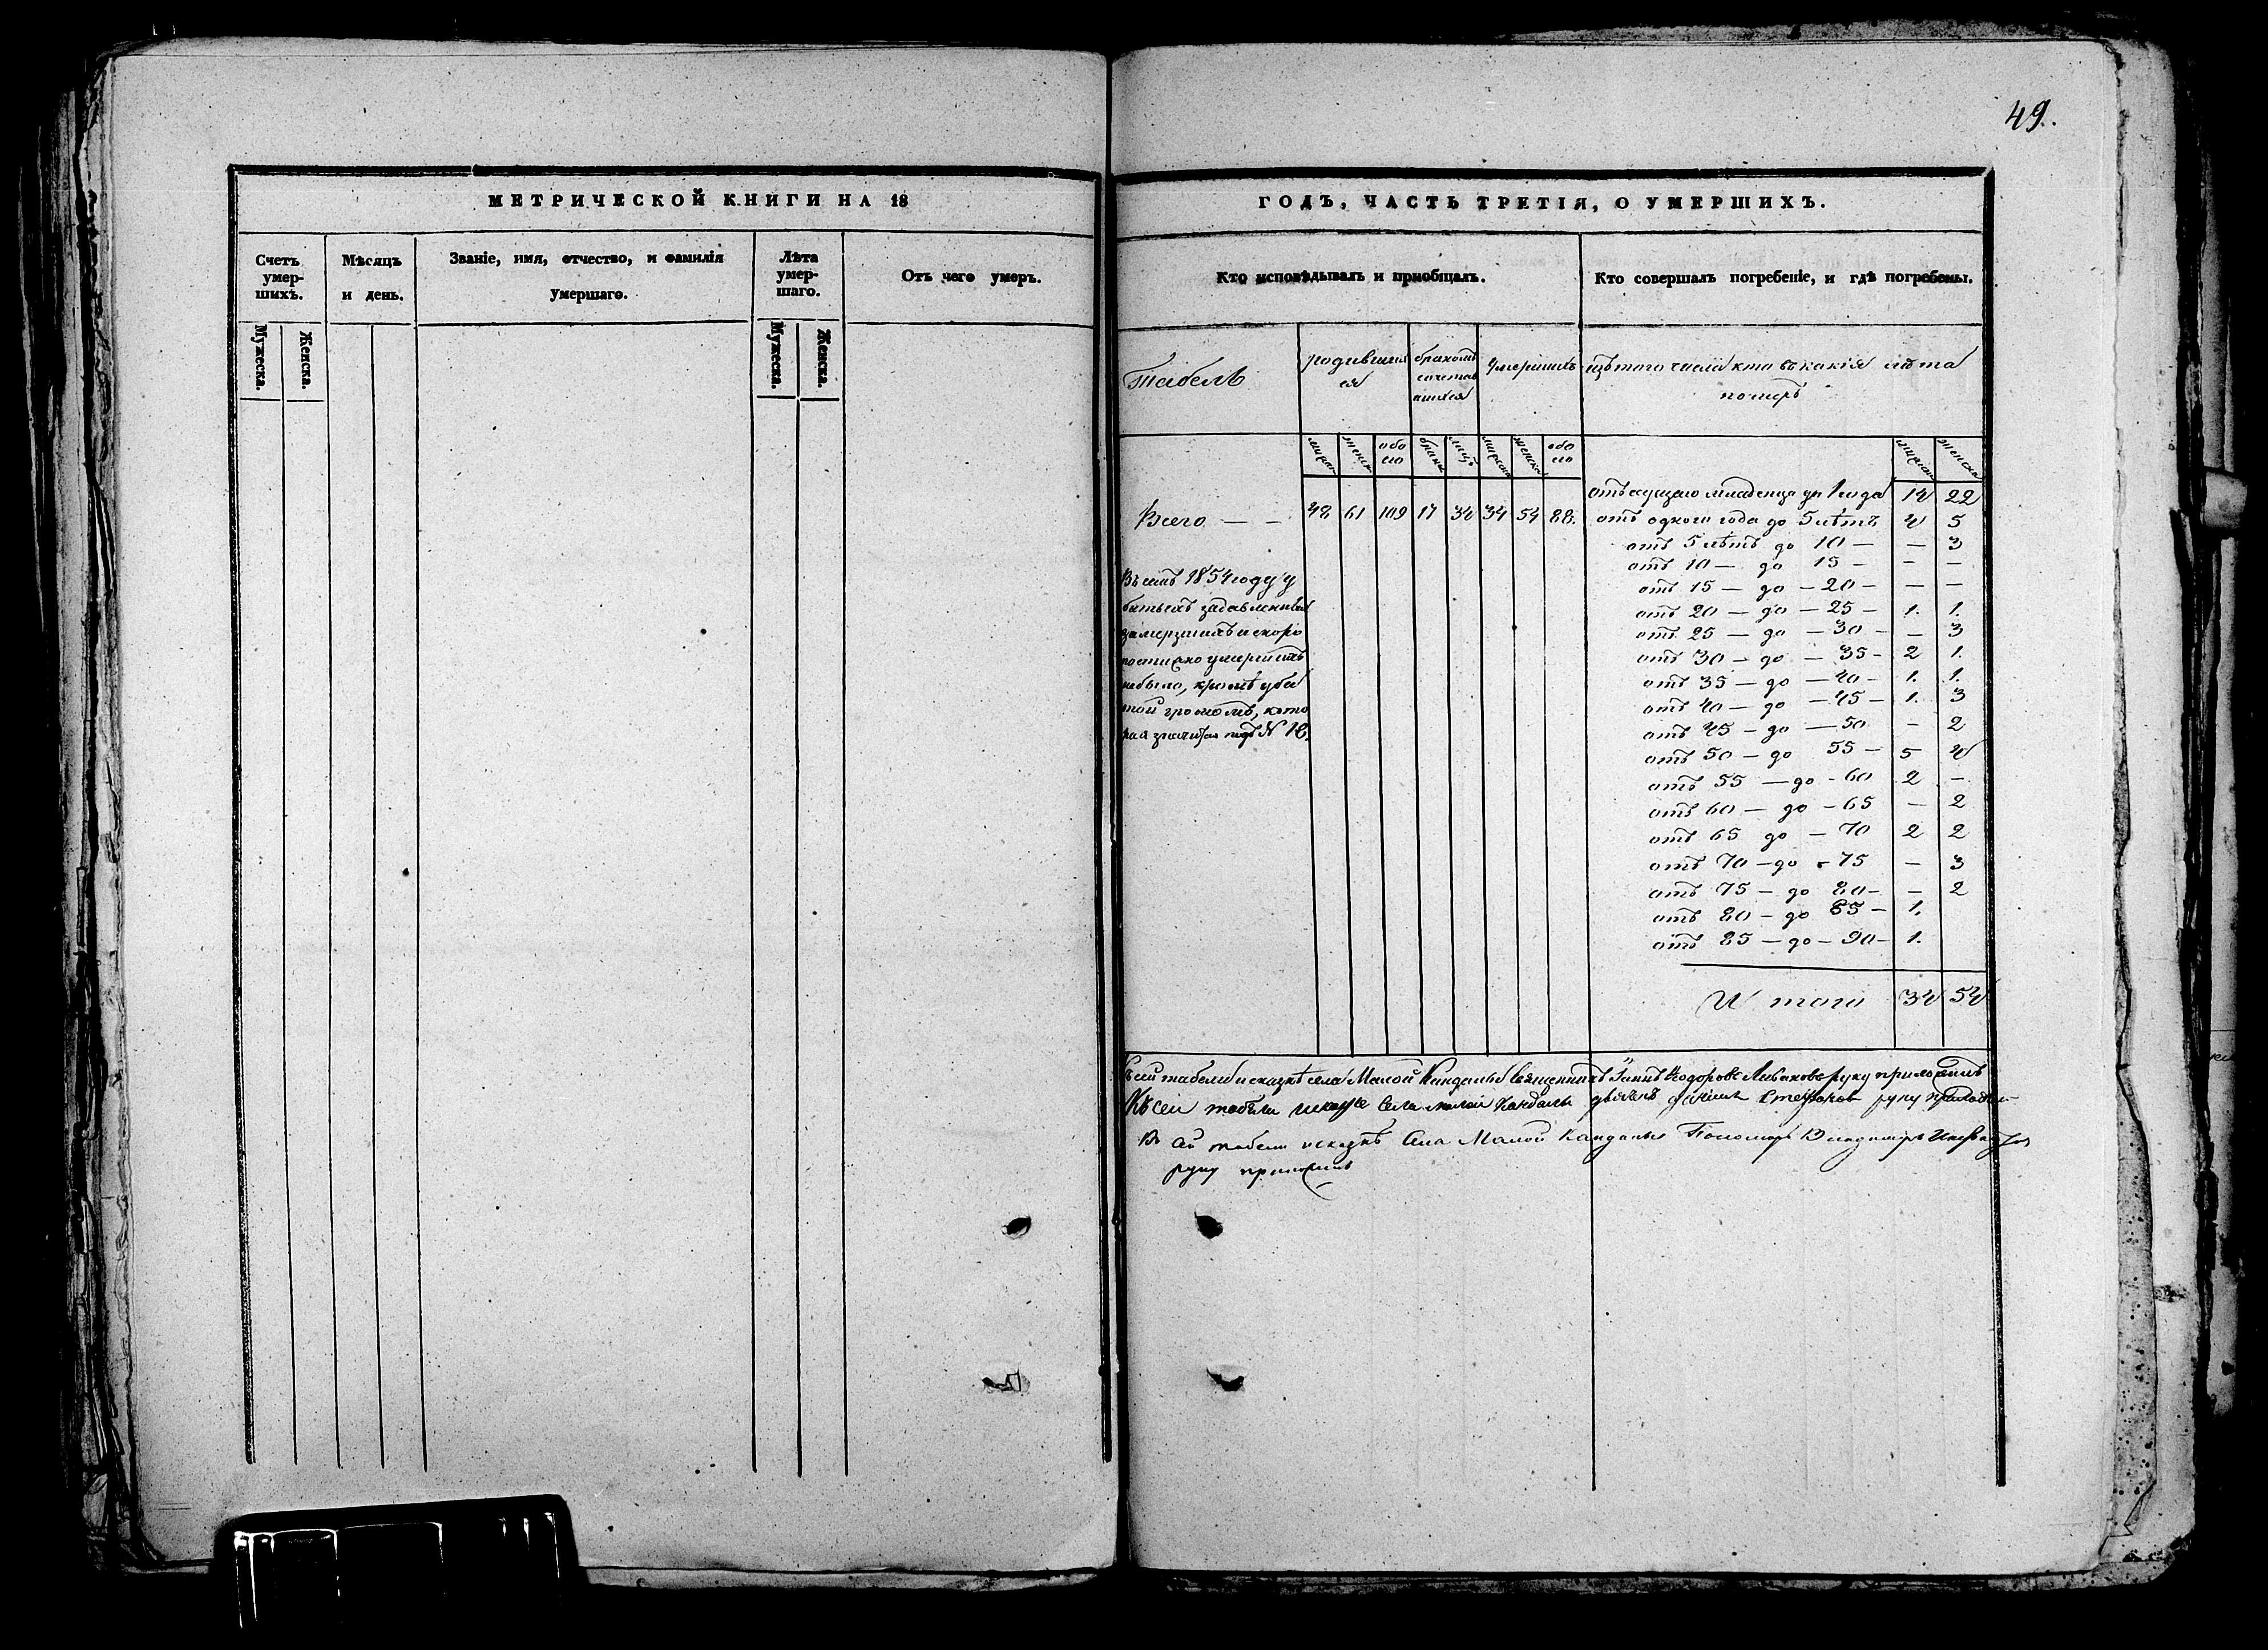 49.
МЕТРИЧЕСКОЙ КНИГИ НА 18
Счетъ умер-шихъ.
Мѣсяцъ и день.
Званіе, имя, отчество, и фамилія умершаго.
Лѣта умер-шаго.
Отъ чего умеръ.
Мужеска. Женска.
Мужеска. Женска.
ГОДЪ, ЧАСТЬ ТРЕТІЯ, О УМЕРШИХЪ.
Кто исповѣдывалъ и пріобщалъ.
Кто совершалъ погребеніе, и гдѣ погребены.
Табель
родившихся
бракомъ сочетавшихся
умершихъ
изъ того числа кто въ какія лѣта померъ
женск обоего браки лицъ женска обоего
женска
Всего — — 48 61 109 17 34 34 54 88.
Въ семъ 1854 году у
битыхъ задавленныхъ
замерзшихъ и скоро
постижно умершихъ
небыло, кромѣ уби
той громомъ, кото
рая значится подъ № 18.
отъ сущаго младенца до 1 года 14 22
отъ одного года до 5 лѣтъ 4 5
отъ 5 лѣтъ до 10 — — 3
отъ 10 — до 15 — — —
отъ 15 — до — 20 — — —
отъ 20 — до — 25 — 1. 1.
отъ 25 — до — 30 — — 3
отъ 30 — до — 35 — 2 1.
отъ 35 — до — 40 — 1. 1.
отъ 40 — до — 45 — 1. 3
отъ 45 — до — 50 — 2
отъ 50 — до 55 — 5 4
отъ 55 — до — 60 2 —
отъ 60 — до — 65 — 2
отъ 65 до — 70 2 2
отъ 70 — до — 75 — 3
отъ 75 — до 80 — — 2
отъ 80 — до 85 — 1.
отъ 85 — до — 90 — 1.
Итого 34 54
Къ сей табели и сказкѣ села Малой Кандалы Священникъ Іоаннъ Ѳеодоровъ руку приложилъ
Къ сей табели и сказке села малой Кандалы руку приложил
Къ сей табели и сказкѣ села Малой Кандалы Пономарь Владимиръ
руку приложилъ